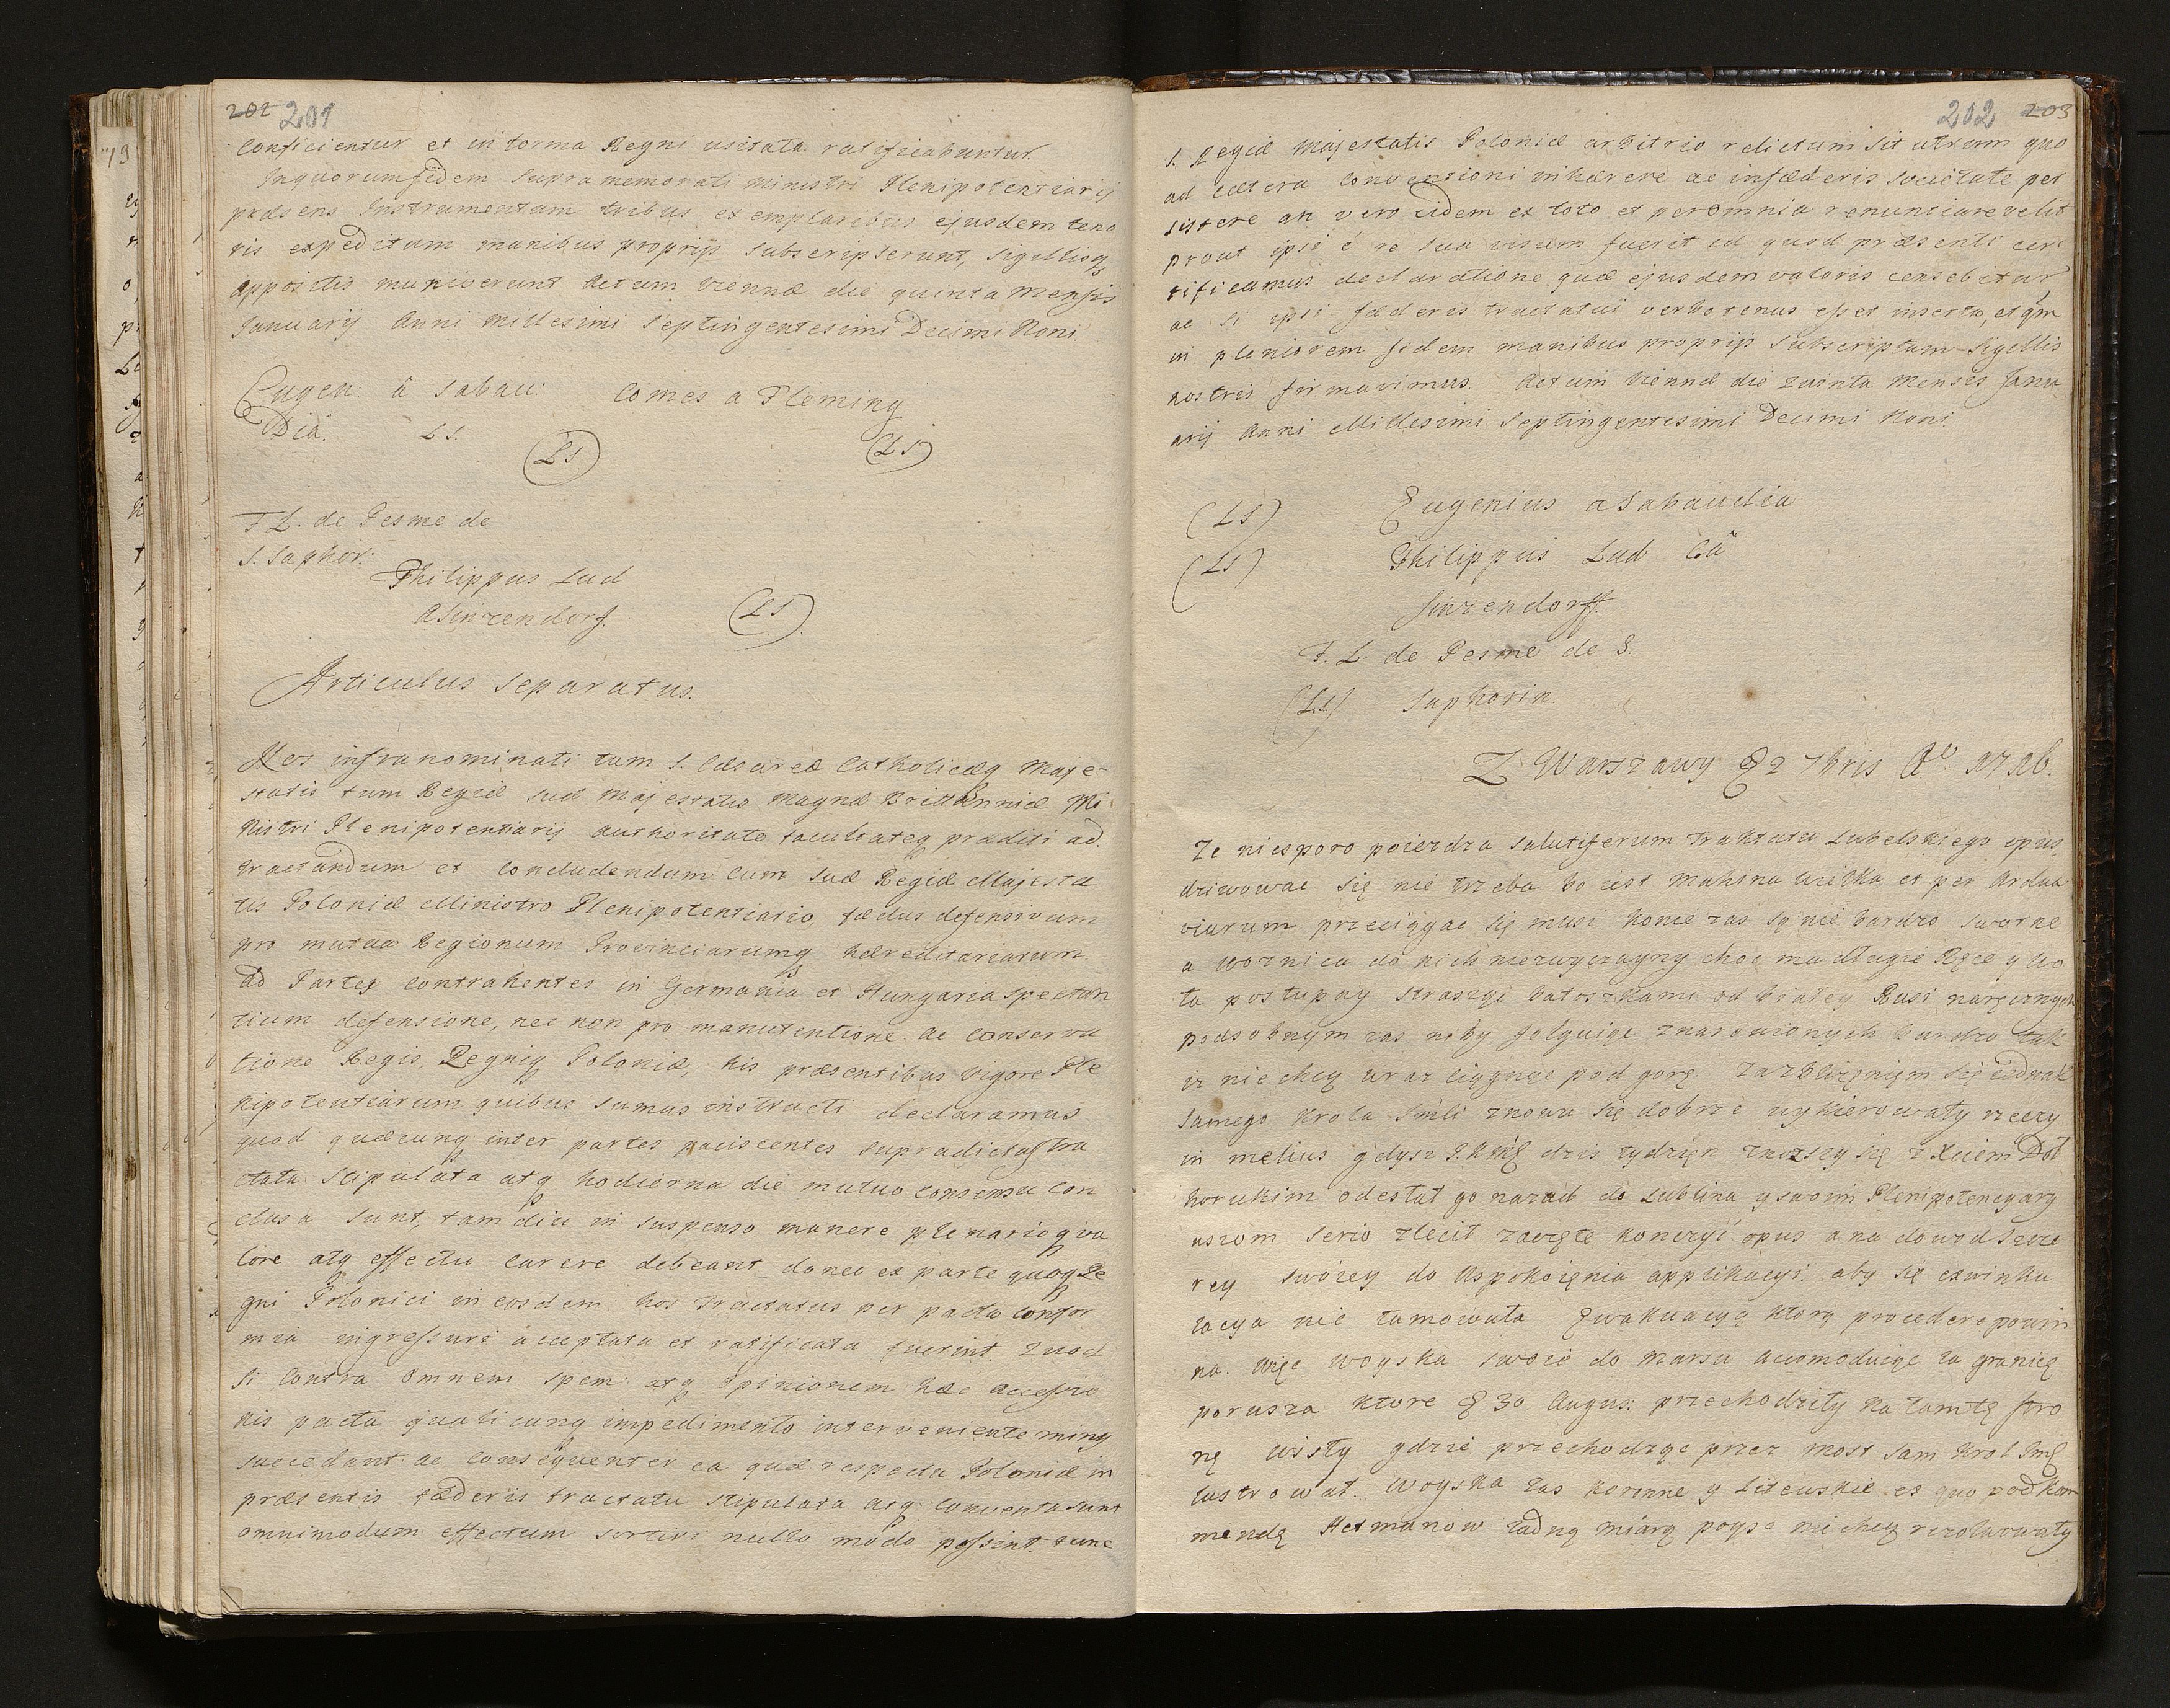 202 201
conficientur et in forma Regni usitata ratificabuntur.
In quorum fidem supra memorati Ministri Plenipotentiarij
præsens Instrumentum tribus exemplaribus ejusdem teno
ris expeditum manibus proprijs subscripserunt, sigillisq
appositis muniverunt Actum Viennæ die quinta Mensis
Januarij Anni Millesimi Septingentesimi Decimi Noni.
Eugen: â Sabau: Comes a Fleming
Diâ. LS.
(LS) (LS)
F L. de Pesme de
S. Saphor:
Philippus Lud
a Sinzendorf.
(LS)
Articulus Separatus.
Nos infranominati tum S. Cæsareæ Catholicæq Maje-
statis tum Regiæ suæ Majestatis Magnæ Brittanniæ Mi
nistri Plenipotentiarij authoritate facultateq præditi ad
tractandum et concludendum cum suæ Regiæ Majesta
tis Poloniæ Ministro Plenipotentiario, fædus defensivum
pro mutua Regionum Provinciarumq hæreditariarum
ad Partes contrahentes in Germania et Hungaria spectan
tium defensione, nec non pro manutentione ac conserva
tione Regis, Regniq Poloniæ, his præsentibus vigore Ple
nipotentiarum quibus sumus instructi declaramus
quod quæcunq inter partes paciscentes supradictas tra
ctata stipulata atq hodierna die mutuo consensu con
clusa sunt, tam diu in suspenso manere plenarioq va
lore atq effectu carere debeant donec ex parte quoq Re
gni Polonici in eosdem hos tractatus per pacta confor
mia ingressuri acceptata et ratificata fuerint. Quod
si contra omnem spem atq opinionem hæc accessio
nis pacta qualicunq impedimento interveniente minq
succedant ac consequenter ea quæ respectu Poloniæ in
præsentis fæderis tractatu stipulata atq conventa sunt
omnimodum effectum sortiri nullo modo possint tunc
202 203
S. Regiæ Majestatis Poloniæ arbitrio relictum sit utrum quo
ad cætera conventioni inhærere ac in fæderis societate per
sistere an vero eidem ex toto et per omnia renuntiare velit
prout ipsi é re sua visum fueret id quod præsenti cer
tificamus declaratione quæ ejusdem valoris censebitur
ac si ipsi fæderis tractatui verbotenus esset inserta, et qm
in pleniorem fidem manibus proprijs subscriptam Sigillis
nostris firmavimus. Actum Viennæ die Quinta Mensis Janu
arij Anni Millesimi Septingentesimi Decimi Noni
(LS) Eugenius a Sabaudia
(LS) Philippus Lud Câ
Sinzendorff.
F. L. de Pesme de S.
(LS) Saphorin.
Z Warszawy 2 7bris Ao
Ze niesporo poiezdza salutiferum Traktatu Lubelskiego opus,
dziwowac się nie trzeba bo iest Mahina wielka et per ardua
viarum przeciągac się musi konie zas są nie bardzo sworne
a woznica do nich niezwyczayny choc ma długie Ręce y wo
ła postupay strasząc batoszkami od białey Rusi naręcznych
podsobnym zas niby folguiąc znarowionych bardzo tak
iz nie chcą wraz ciągnąc pod gorę. Za zblizęnięm się iednak
samego Krola Jmści znowu się dobrze wykierowały rzeczy
in melius gdysz dzis tydzięn zniozszy się z Xciem Dol
horukim odesłał go nazad do Lublina y swoim Plenipotencyary
uszom serio zlecił zaczęte konczyć opus a na dowod szcze
rey swoiey do uspokoięnia applikacyi. aby się
lacya nie tamowała Ewakuacyą ktorą procedere powin
na. Więc woyska swoie do marszu accomoduiąc za granicę
porusza ktore 30 Augus: przechodziły na tamtę stro
nę Wisły gdzie przechodząc przez most sam Krol Jmć
lustrował. Woyska zas koronne y Litewskie ex quo pod kom
mendę Hetmanow zadną miarą poysc nie chcą rezolwowały